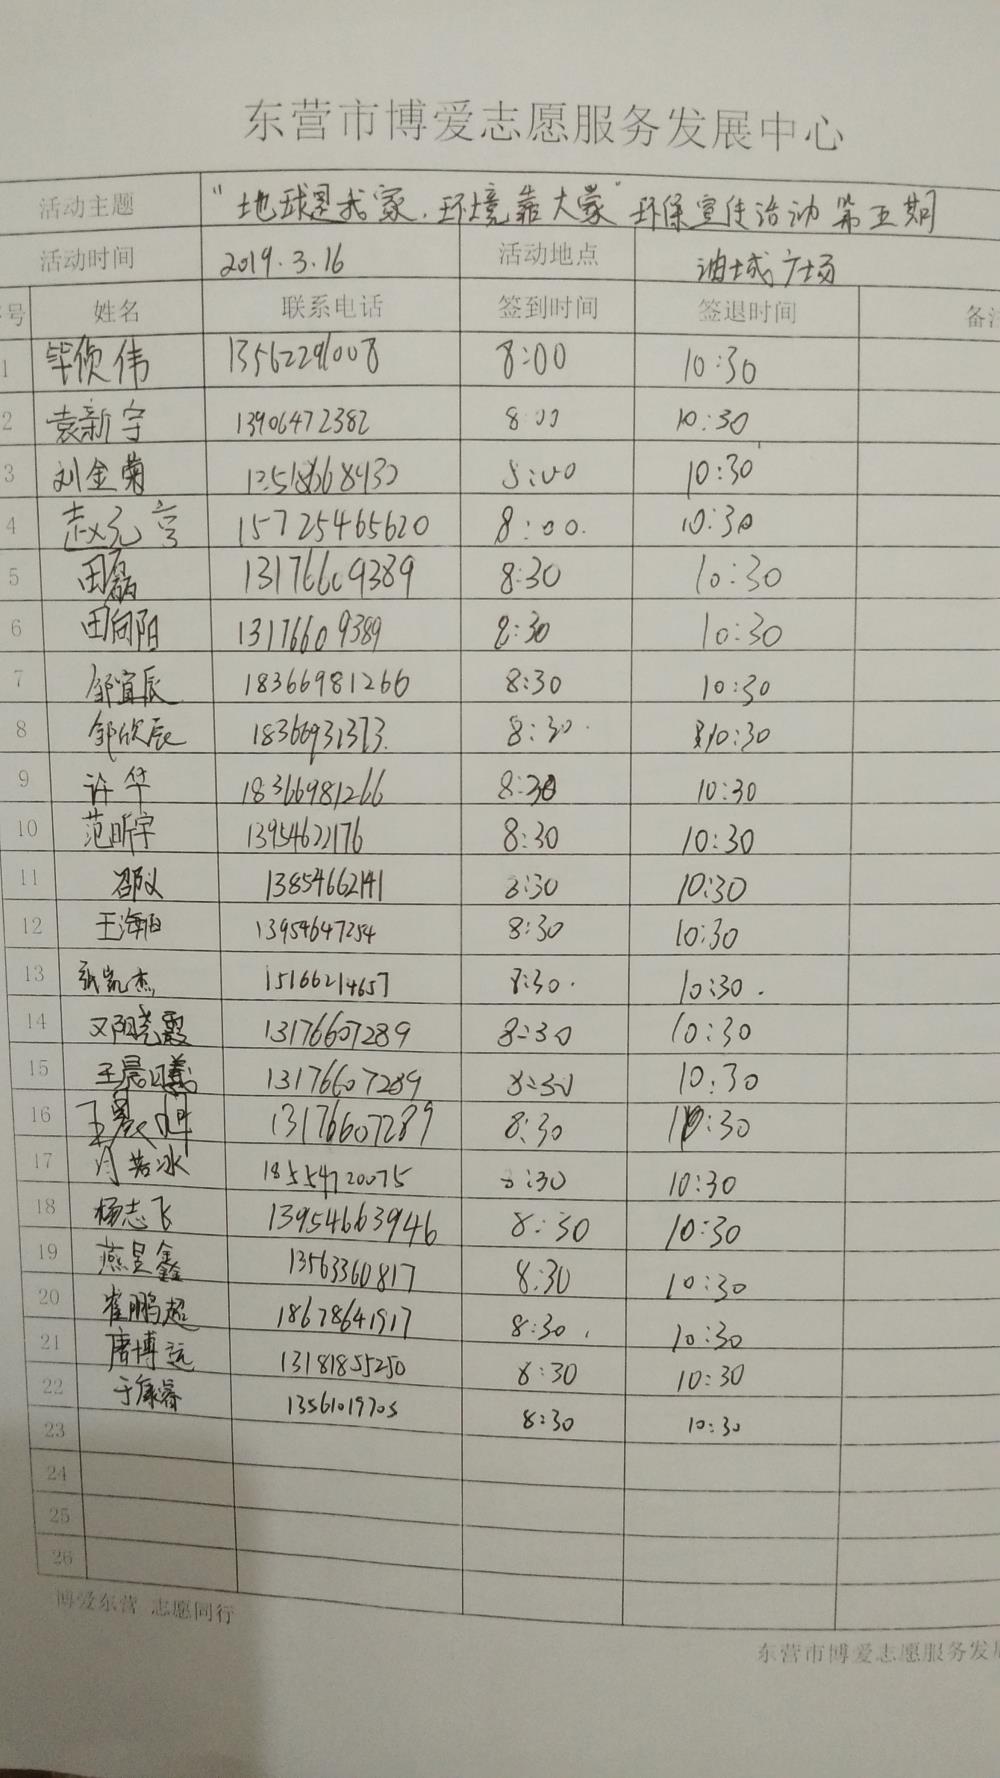 东营市博爱志愿服务发展中心
活动主题 "地球是我家,环境靠大家"环保宣传活动第五期
活动时间 2019.3.16 活动地点 油城广场
号 姓名 联系电话 签到时间 签退时间 备注
1 毕侦伟 13562291008 8:00 10:30
2 袁新宇 13906472382 8:00 10:30
3 刘金菊 8:00 10:30
4 赵元亨 15725465620 8:00. 10:30
5 田磊 13176609389 8:30 10:30
6 田向阳 13176609389 8:30 10:30
7 邹宜辰 18366981266 8:30 10:30
8 邹欣辰 18366931373. 8:30. 10:30
9 许华 18366981266 8:30 10:30
10 范昕宇 13954622176 8:30 10:30
11 邵义 13854662141 8:30 10:30
12 王海伯 13954647254 8:30 10:30
13 张凯杰 15166214657 8:30. 10:30.
14 欧阳晓霞 13176607289 8:30 10:30
15 王晨曦 13176607289 8:30 10:30
16 王晨 13176607289 8:30 10:30
17 若冰 18554720075 8:30 10:30
18 杨志飞 13954663946 8:30 10:30
19 燕昱鑫 13563360817 8:30 10:30
20 崔鹏超 18678641917 8:30. 10:30
21 唐博远 13181855250 8:30 10:30
22 于康睿 13561019705 8:30 10:30
23
24
25
26
博爱东营 志愿同行
东营市博爱志愿服务发展